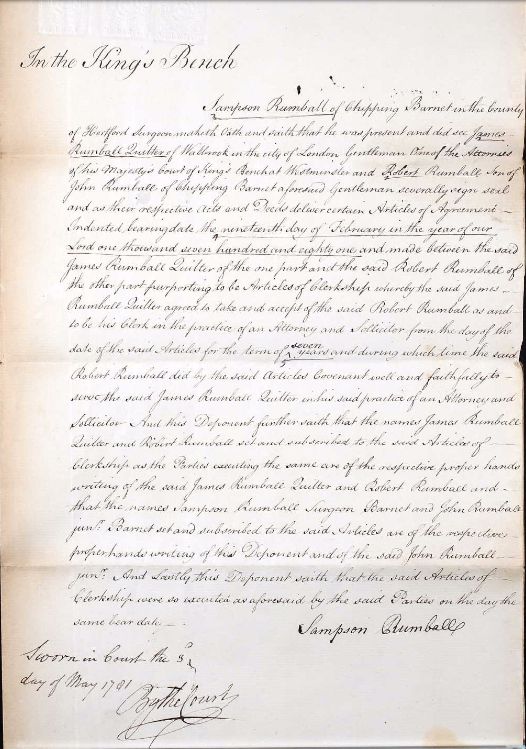 In the King's Bench
Sampson Rumball of Chipping Barnet in the County
of Hertford Surgeon maketh Oath and saith that he was present and did see James
Rumball Quilter of Walbrook in the city of London Gentleman One of the Attornies
of his Majestys Court of King's Bench at Westminster and Robert Rumball Son of
John Rumball of Chipping Barnet aforesaid Gentleman severally sign seal
and as their respective Acts and Deeds deliver certain Articles of Agreement
Indented bearing date the nineteenth day of February in the year of our
Lord one thousand seven hundred and eighty one and made between the said
James Rumball Quilter of the one part and the said Robert Rumball of
the other part purporting to be Articles of Clerkship whereby the said James
Rumball Quilter agreed to take and accept of the said Robert Rumball as and
to be his Clerk in the practice of an Attorney and Sollicitor from the day of the
date of the said Articles for the term of seven years and during which time the said
Robert Rumball did by the said Articles Covenant well and faithfully to
serve the said James Rumball Quilter in his said practice of an Attorney and
Sollicitor And this Deponent further saith that the names James Rumball
Quilter and Robert Rumball set and subscribed to the said Articles of
Clerkship as the Parties executing the same are of the respective proper hands
writing of the said James Rumball Quilter and Robert Rumball and
that the names Sampson Rumball Surgeon Barnet and John Rumball
junr. Barnet set and subscribed to the said Articles are of the respective
proper hands writing of this Deponent and of the said John Rumball
junr. And Lastly this Deponent saith that the said Articles of
Clerkship were so executed as aforesaid by the said Parties on the day the
same bear date
Sampson Rumball
Sworn in Court the 8
day of May 1781
By the Court